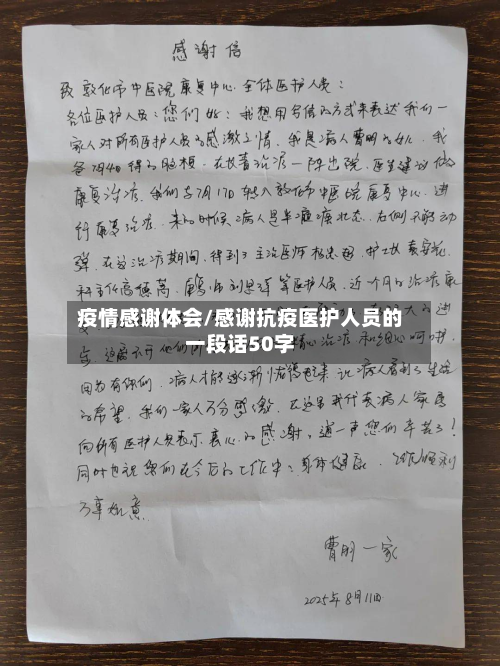 感谢信
致敦化市中医院康复中心全体医护人员：
各位医护人员：您们好：我想用写信的方式来表达我们一
家人对所有医护人员的感激之情，我是病人曹明的女儿，我
爸7月4日得的脑梗，在扶萱治疗一阵出院，医生建议做
康复治疗，我们于7月17日转入敦化市中医院康复中心，进
行康复治疗，来的时候病人是半瘫痪状态，右侧不能动
弹，在这治疗期间，得到了主治医师 护士
科主任高 康复师 等医护人员，近一个月的治疗康
疫情感谢体会/感谢抗疫医护人员的
一段话50字
大的进
治疗和细心呵护，
因为有你们，病人才能逐渐 让病人看到了生活
的希望，我们一家人万分感激，在这里我代表病人家属
向所有医护人员表示衷心的感谢，道一声您们辛苦了！
同时也祝您们在今后的工作中：身体健康，工作顺利
万事如意
曹明一家
2025年8月11日